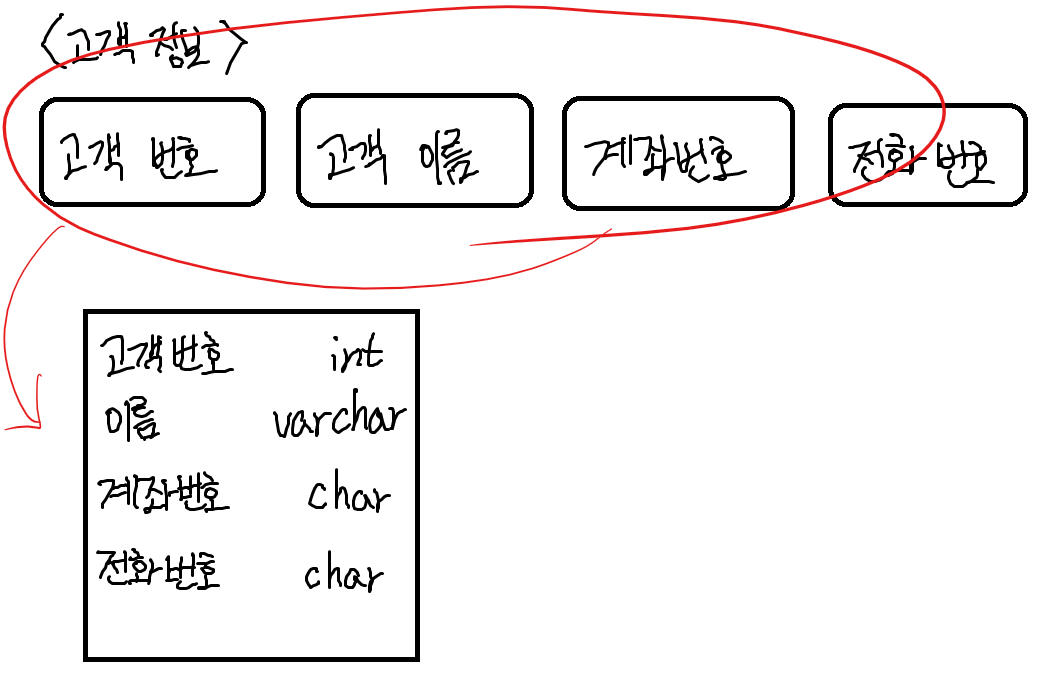 <고객 정보>
고객 번호 고객 이름 계좌번호 전화 번호
고객번호 int
이름 varchar
계좌번호 char
전화번호 char